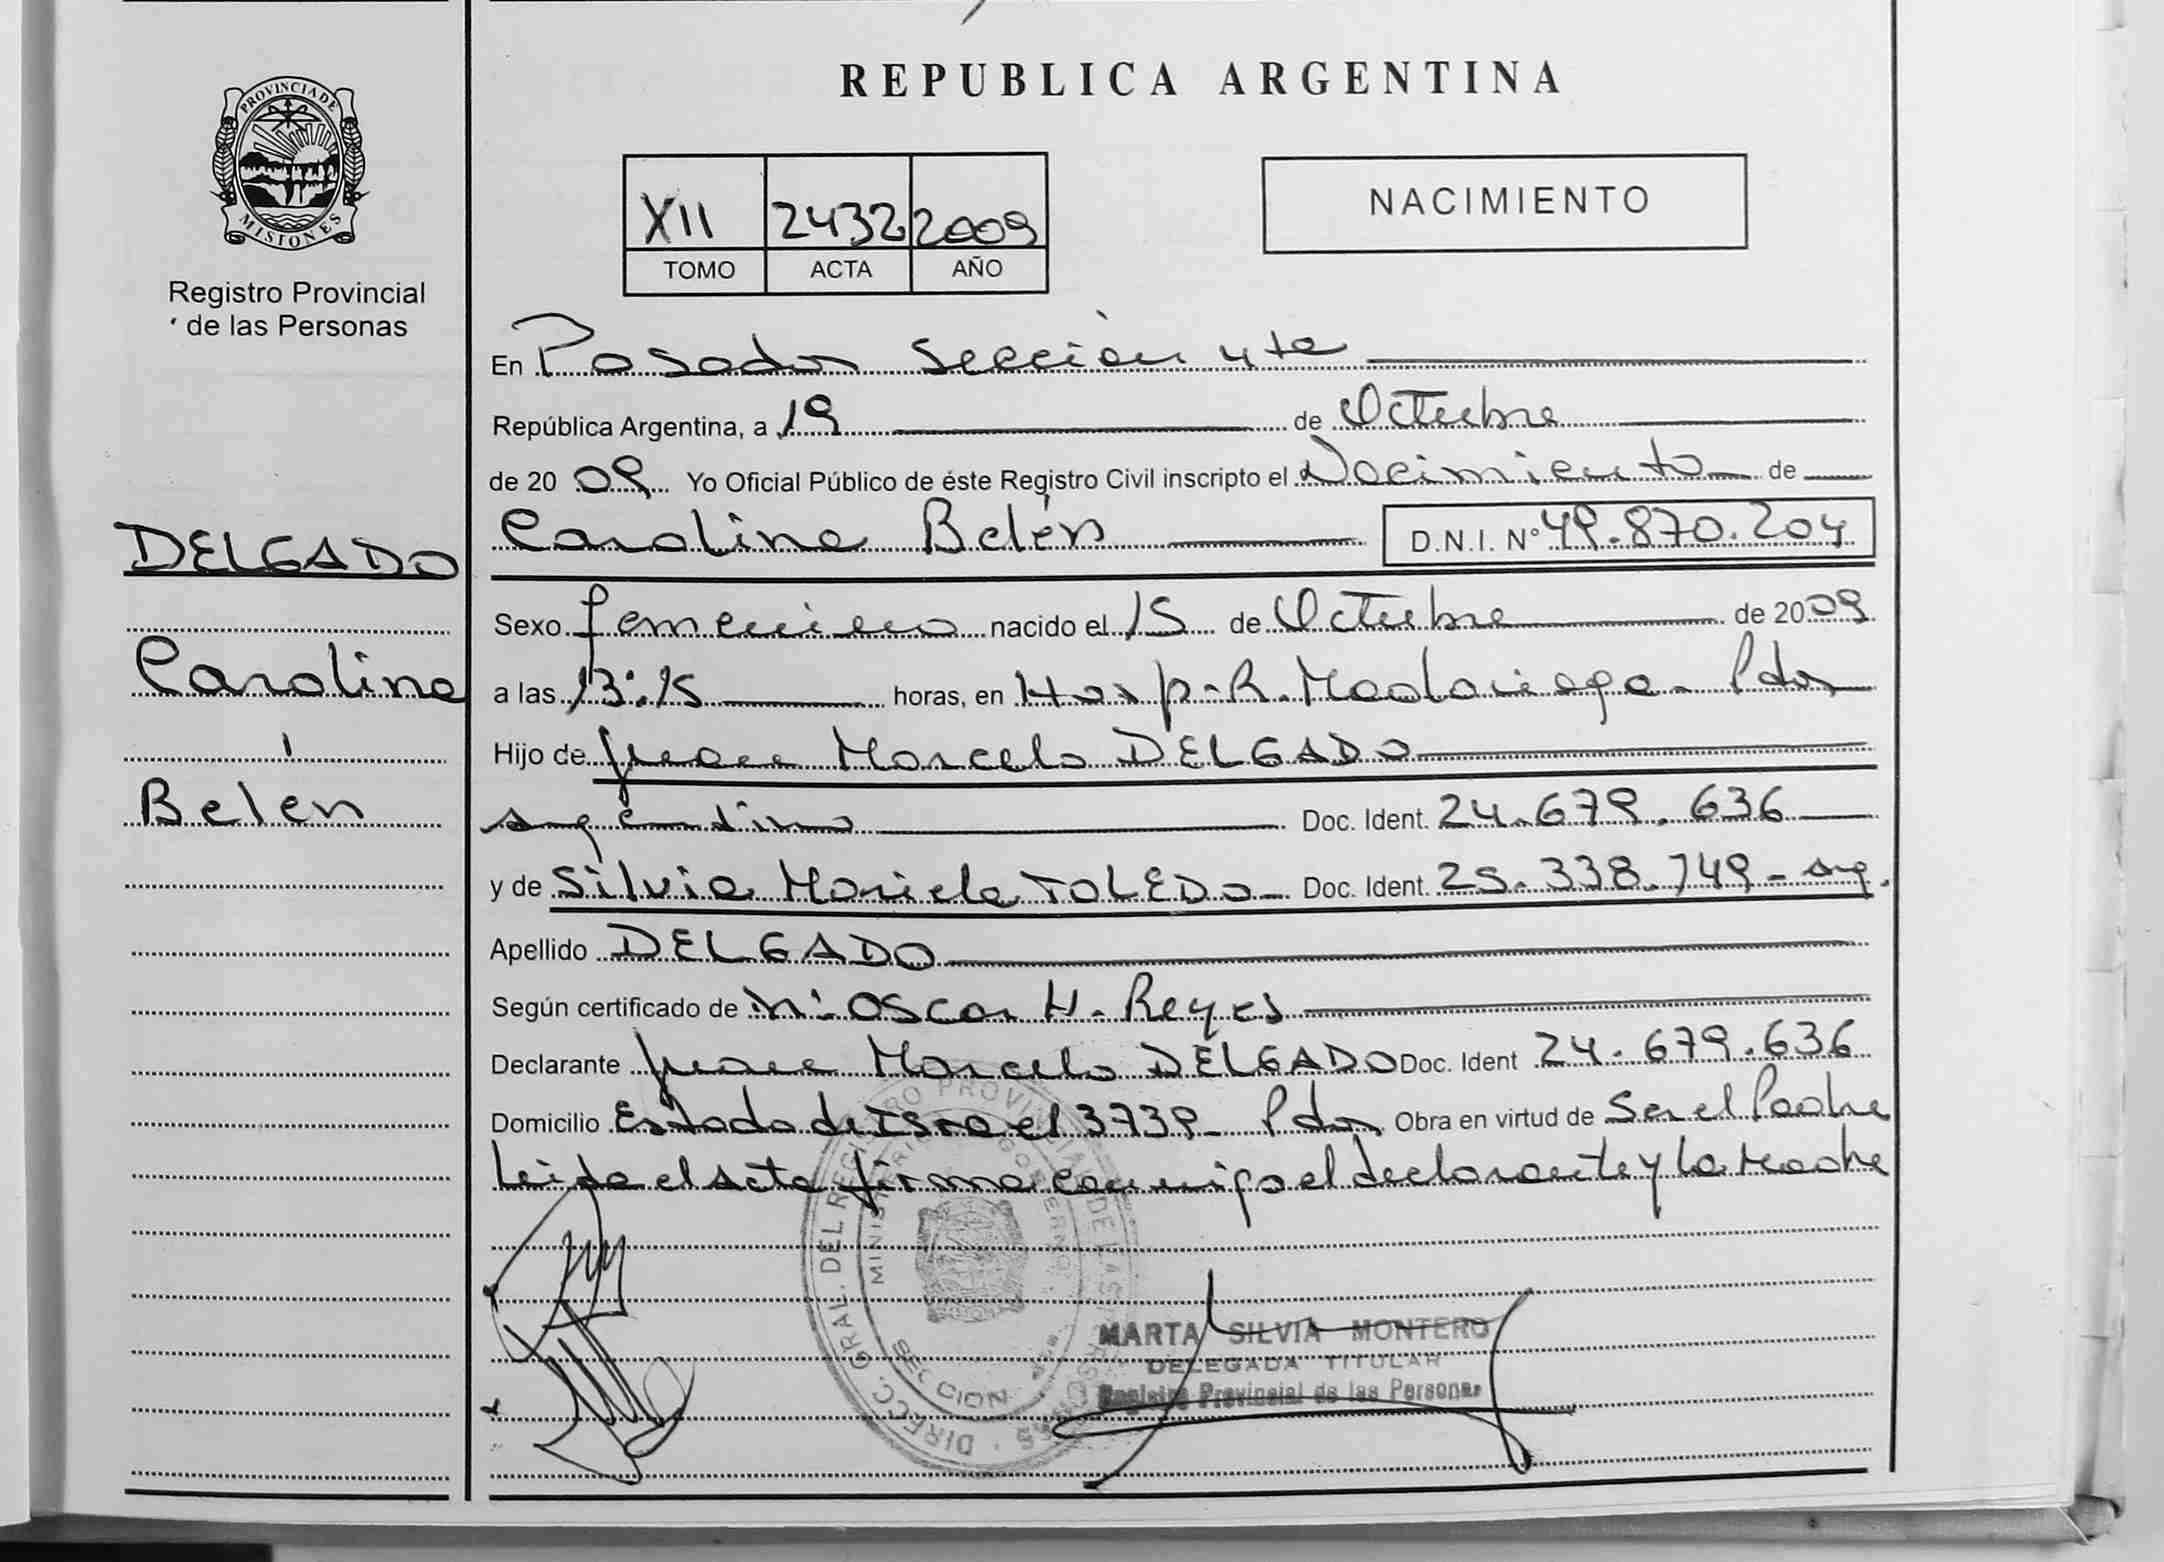 PROVINCIA DE
MISIONES
Registro Provincial
de las Personas
DELGADO
Carolina
Belén
REPUBLICA ARGENTINA
XII 2432 2009
TOMO ACTA AÑO
NACIMIENTO
En Posadas Sección 4ta
República Argentina, a 19 de Octubre
de 20 09 Yo Oficial Público de éste Registro Civil inscripto el Nacimiento de
Carolina Belén D.N.I. N° 49.870.204
Sexo femenino nacido el 15 de Octubre de 2009
a las 13:15 horas, en Hosp. R. Madariaga - Pdas
Hijo de Juan Marcelo DELGADO
argentino Doc. Ident. 24.679.636
y de Silvia Mariela TOLEDO Doc. Ident. 25.338.749 - arg.
Apellido DELGADO
Según certificado de Oscar H. Reyes
Declarante Juan Marcelo DELGADO Doc. Ident 24.679.636
Domicilio Estado de Israel 3739 - Pdas Obra en virtud de Ser el Padre
Leida el acta firma conmigo el declarante y la Madre
DIRECC. GRAL. DEL REGISTRO PROVINCIAL DE LAS PERSONAS
MARTA SILVIA MONTERO
DELEGADA TITULAR
Registro Provincial de las Personas